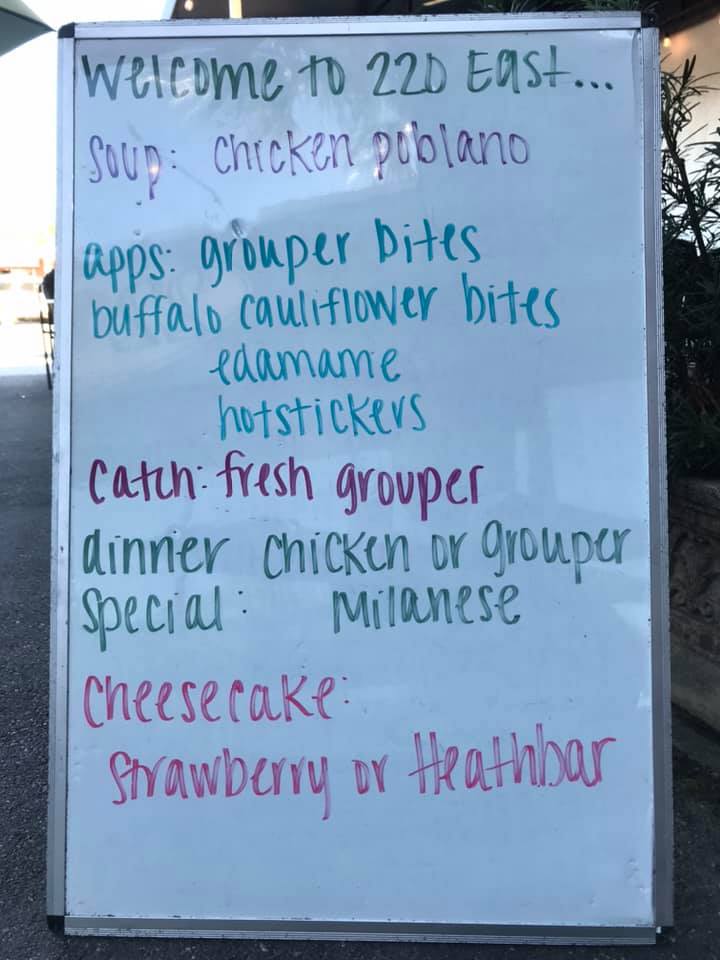 Welcome to 220 East...
Soup: Chicken poblano
apps: grouper bites
buffalo cauliflower bites
edamame
hotstickers
Catch: fresh grouper
dinner chicken or grouper
Special: Milanese
Cheesecake:
Strawberry or Heathbar